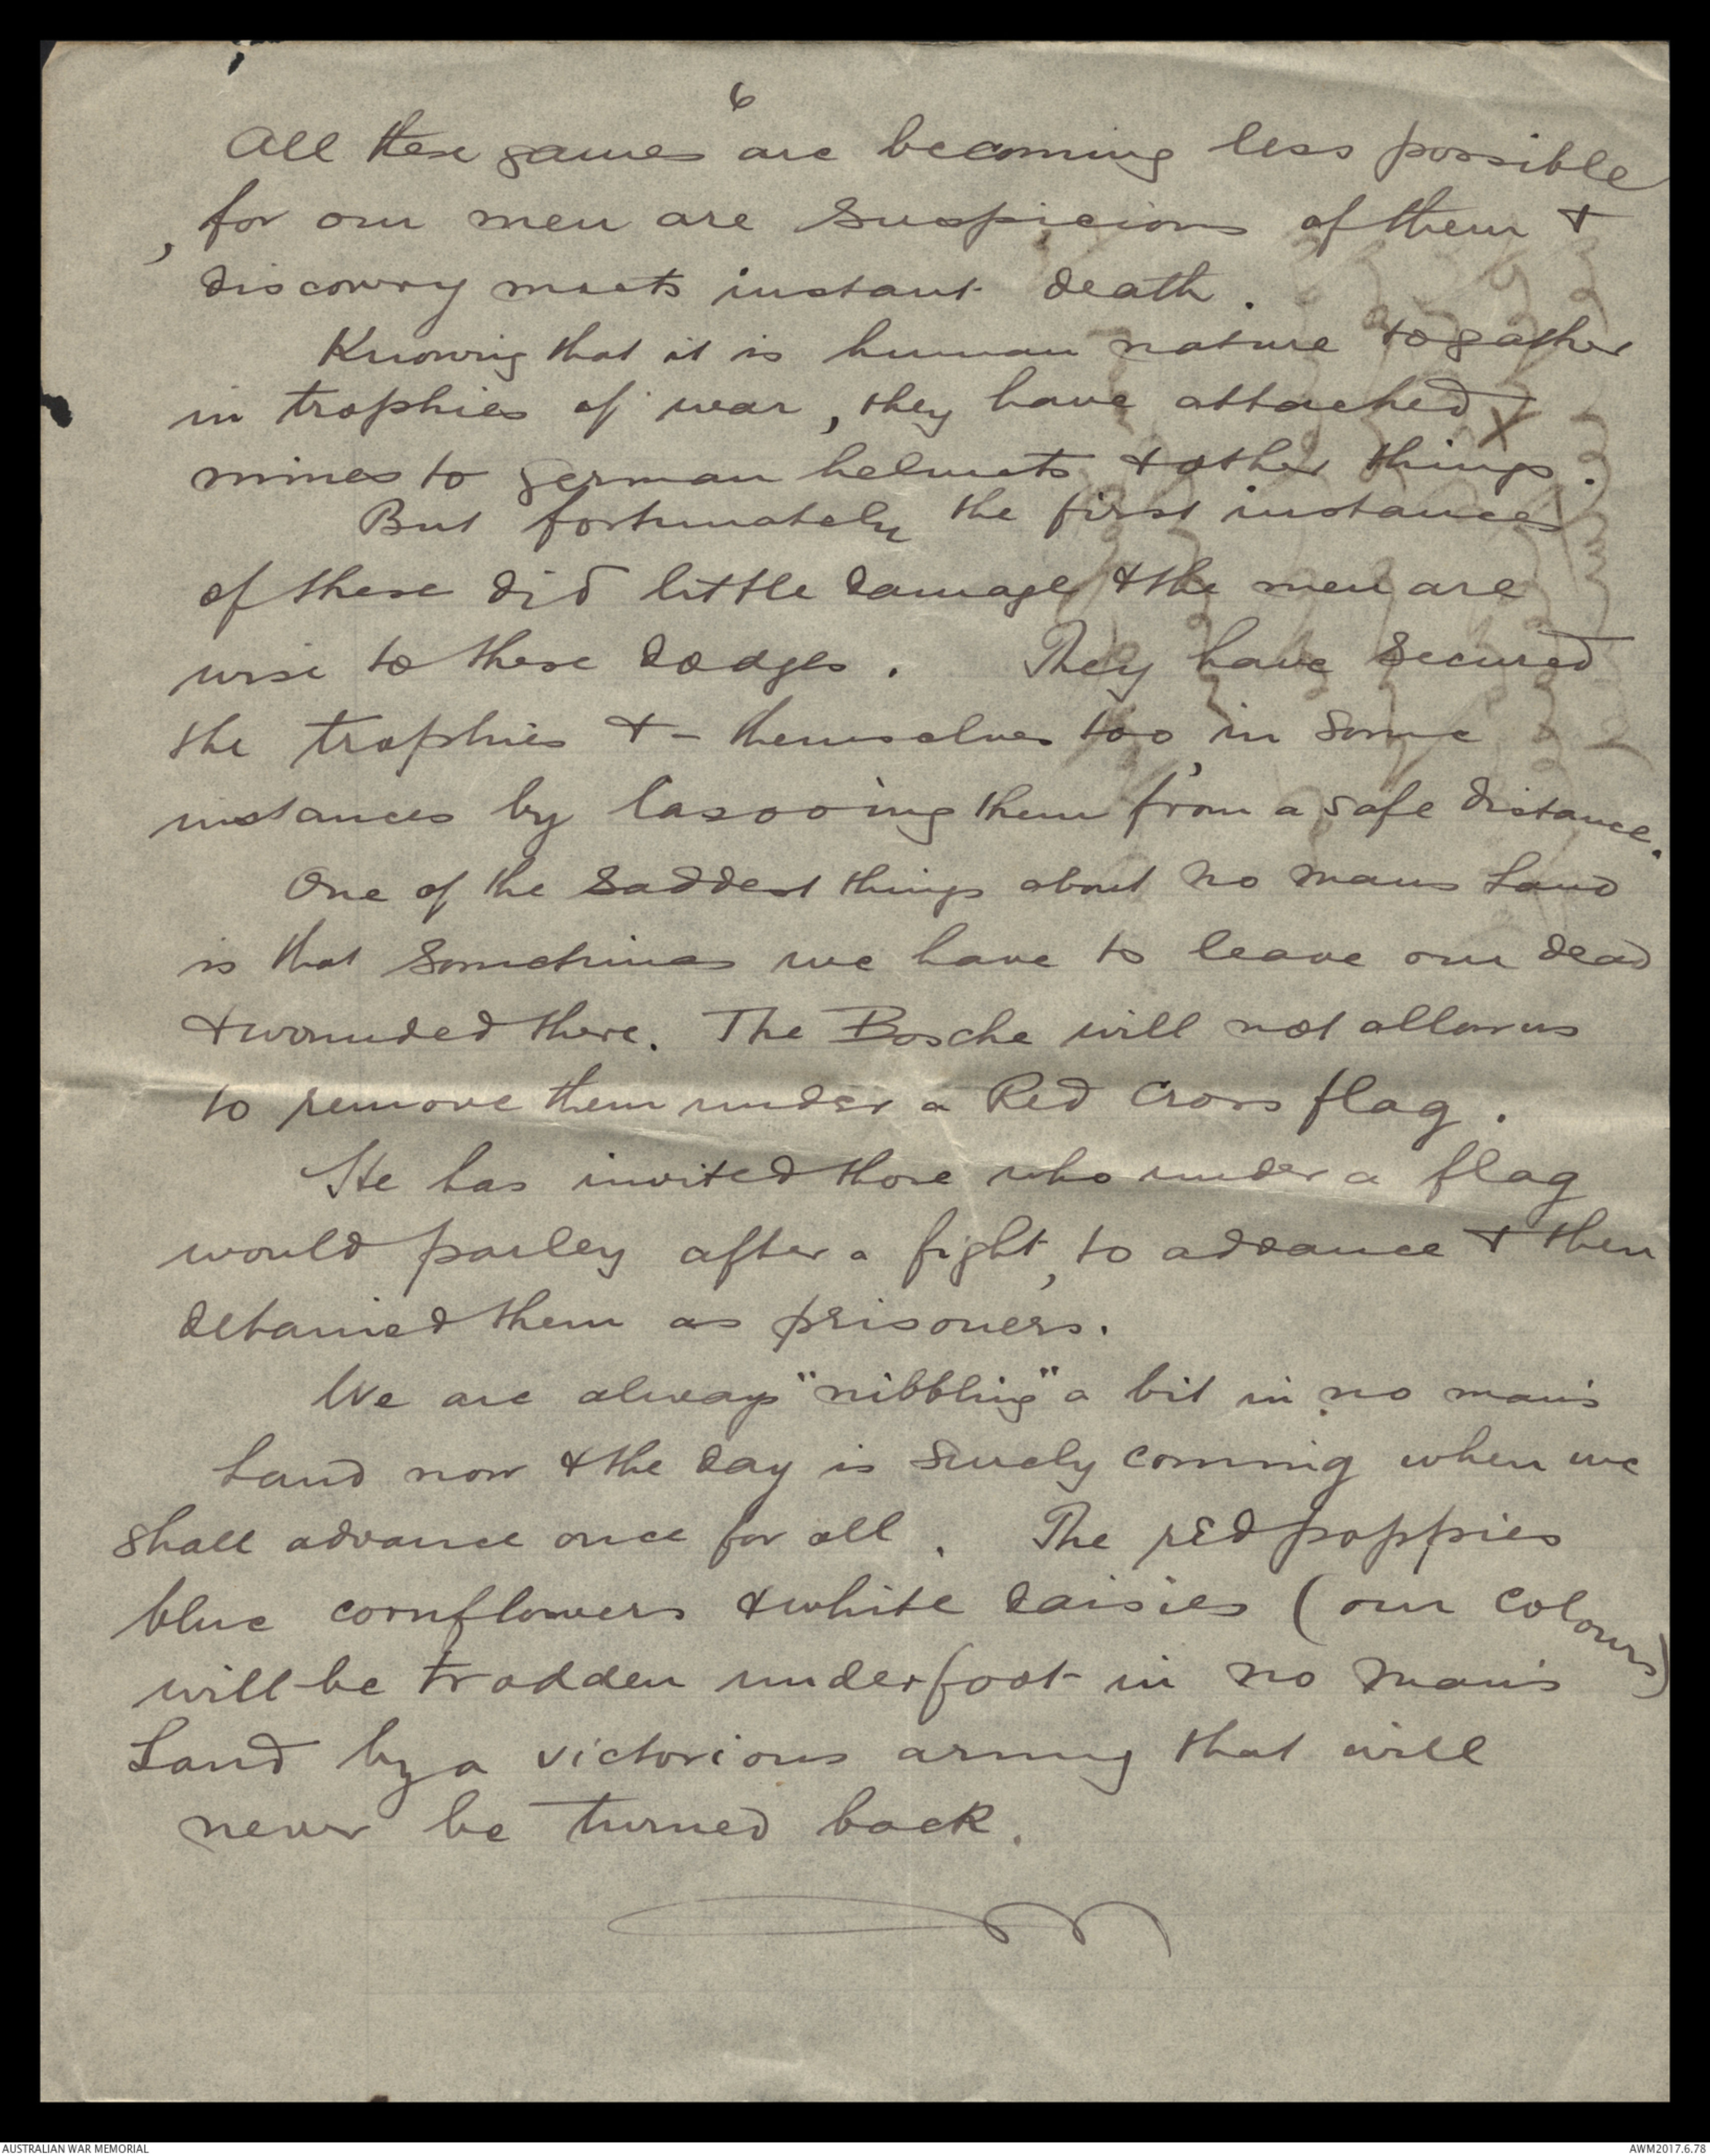 6
All these games are becoming less possible
, for our men are suspicious of them &
discovery meets instant death.
Knowing that it is human nature to gather
in trophies of war, they have attached
mines to german helmets & other things.
But fortunately the first instances
of these did little damage & the men are
wise to these dodges. They have secured
the trophies & - themselves too, in some
instances by lasooing them from a safe distance.
One of the saddest things about No mans Land
is that sometimes we have to leave our dead
& wounded there. The Bosche will not allow us
to remove them under a Red Cross flag.
He has invited those who under a flag
would parley after a fight, to advance & then
detained them as prisoners.
We are always "nibbling" a bit in no man's
Land now & the day is surely coming when we
shall advance once for all. The red poppies
blue cornflowers & white daisies (our colours)
will be trodden underfoot in No Man's
Land by a victorious army that will
never be turned back.
AUSTRALIAN WAR MEMORIAL
AWM2017.6.78